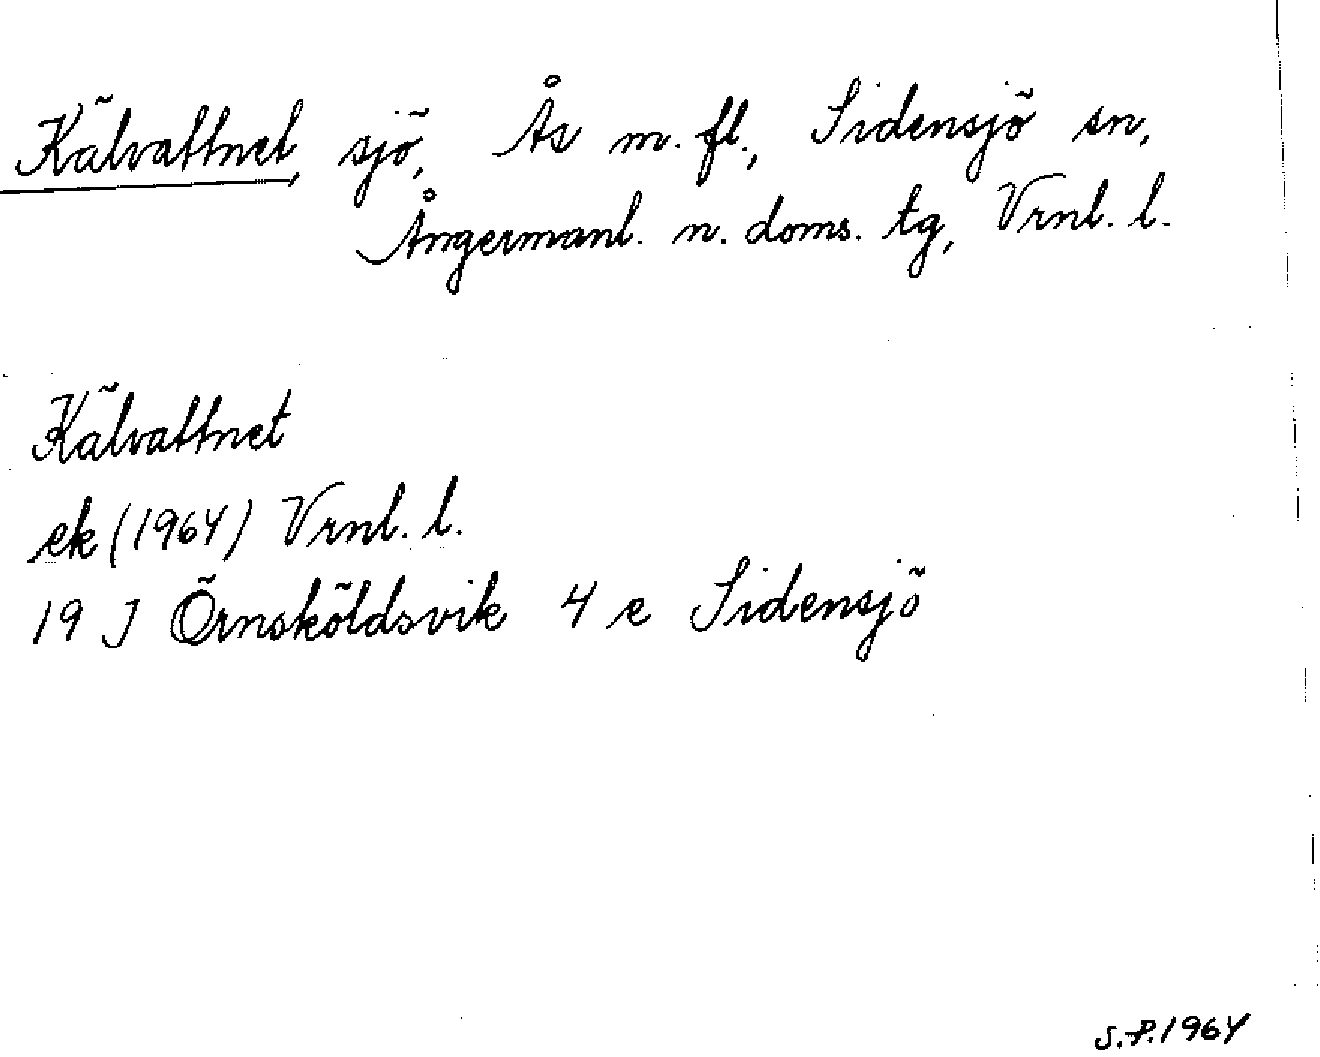 Kälvattnet, sjö, Ås m. fl., Sidensjö sn,
Ångermanl. n. doms. tg, Vrnl. l.
Kälvattnet
ek (1964) Vrnl. l.
19 J Örnsköldsvik 4 e Sidensjö
S.P. 1964